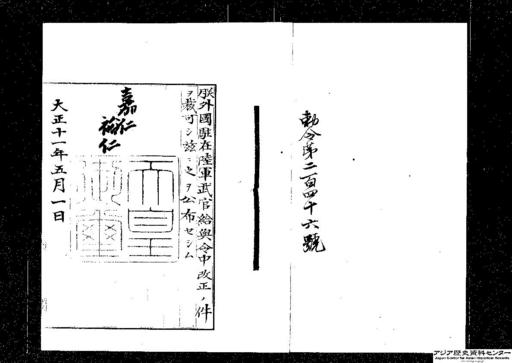 勅令第二百四十六號
朕外國駐在陸軍武官給與令中改正ノ件
ヲ裁可シ茲ニ之ヲ公布セシム
嘉仁
裕仁
天皇
御璽
大正十一年五月一日
アジア歴史資料センター
Japan Center for Asian Historical Records